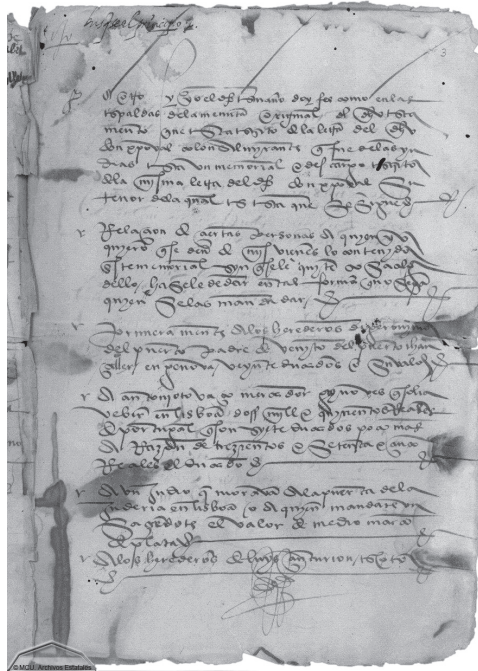 3
y yo el dho escrivano doy fee como en las
espaldas de la memoria original del dho testa
mento que esta escrito de la letra del dho
don xpoval colon almyrante que fue de las yn
dias esta un memorial
de la misma letra del dho don xpoval Su
tenor de la qual es esta que Se Sigue
Relaçion de çiertas personas a quyen yo
quyero que se den de mis vienes lo contenydo
en este memorial syn que se le quyte cosa alguna
dello hasele de dar en tal forma que no sepa
quyen Se las manda dar
primera mente a los herederos de geronimo
del puerto padre de venyto del puerto chan
çiller en genova veynte ducados o Su valor
A antonyo vaço mercader ginoves que solia
vebir en lisboa dos mill e quynientos Reales
de portugal que son syete ducados poco mas
a Razon de trezientos e Setenta e çinco
Reales el ducado
A un Judio que morava a la puerta de la
Juderia en lisboa o a quyen mandare un
Saçerdote el valor de medio marco
de plata
A los herederos de luys çenturion escoto
© MCU. Archivos Estatales